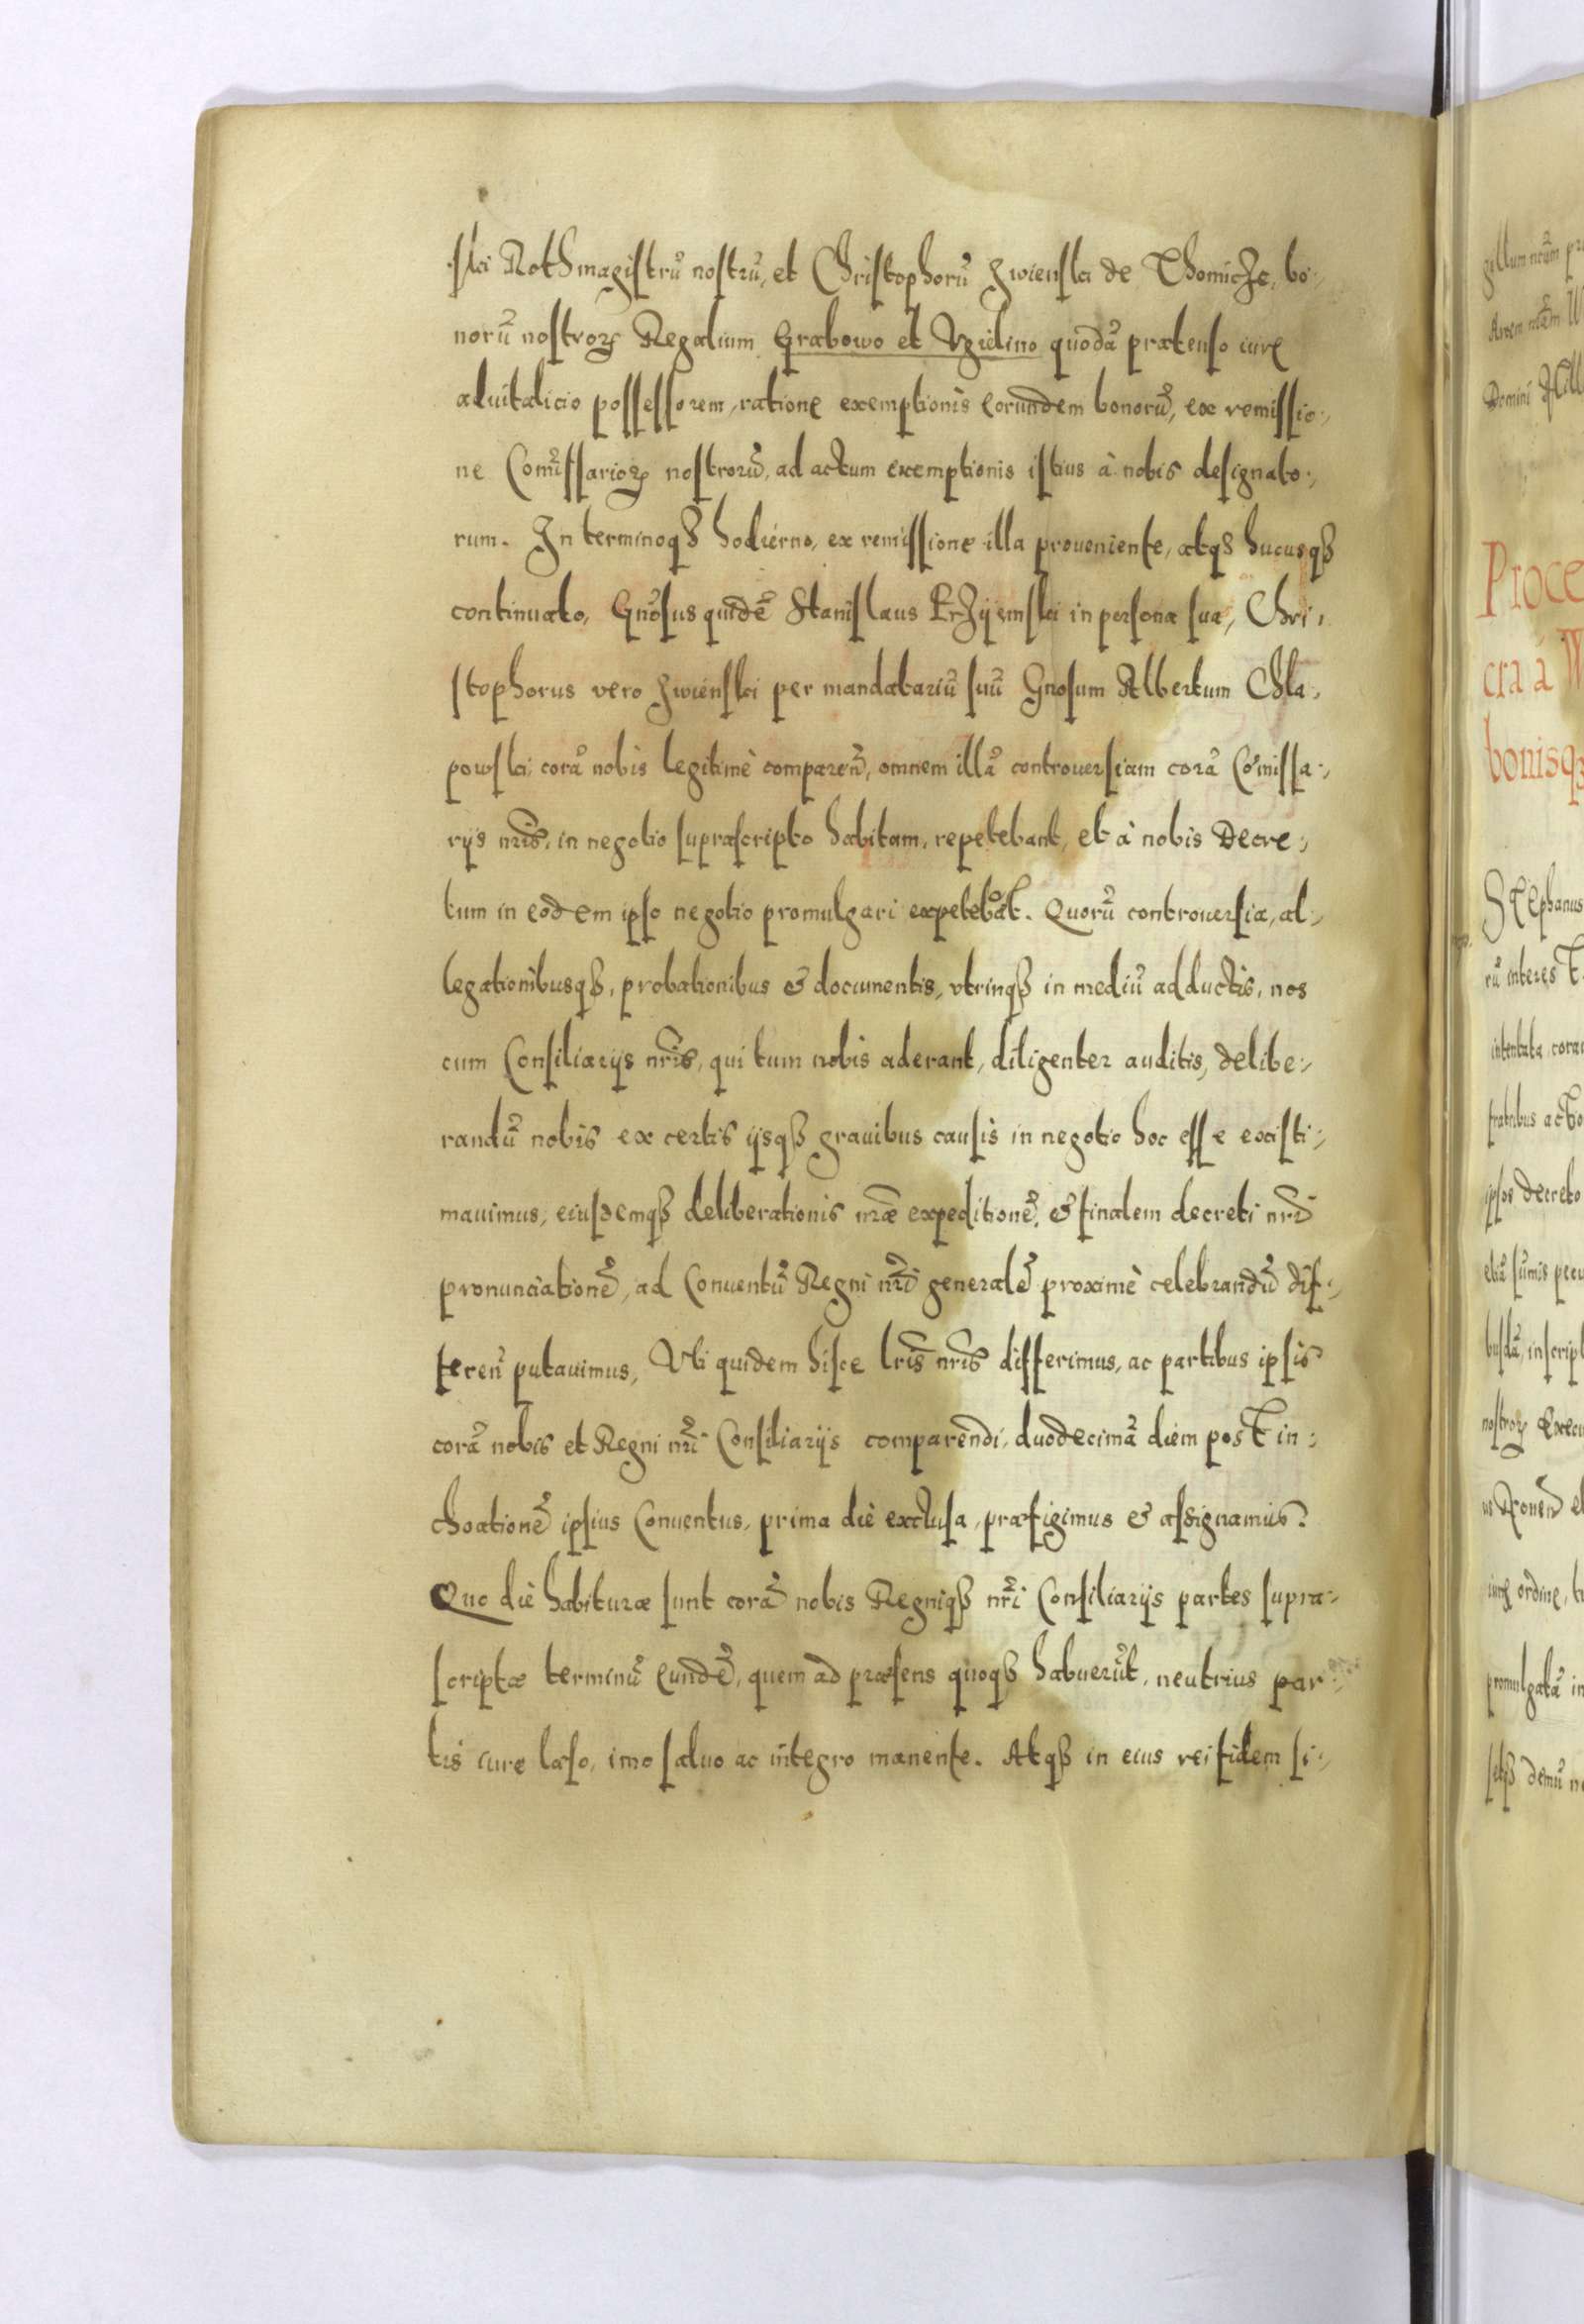 ski Rothmagistrū nostrū, et Christophorū Zwienski de Chomicze, bo-
norū nostroꝝ Regalium Grabowo et Vzielino quodā prætenso iure
aduitalicio possessorem, ratione exemptionis eorundem bonorū, ex remissio-
ne Com̄issarioꝝ nostrorū, ad actum exemptionis istius à nobis designato-
rum. In terminoqꝫ hodierno, ex remissione illa proueniente, atqꝫ hucusqꝫ
continuato, Gnōsus quidē Stanislaus Krzijemski in persona sua, Chri-
stophorus vero Zwienski per mandatariū suū Gnosum Albertum Chla-
powski, corā nobis legitimè comparen̄, omnem illā controuersiam corā Com̄issa-
rijs nr̄is, in negotio suprascripto habitam, repetebant, et à nobis Decre-
tum in eodem ipso negotio promulgari expetebāt. Quorū controuersia, al-
legationibusqꝫ, probationibus & documentis, vtrinqꝫ in mediū adductis, nos
cum Consiliarijs nr̄is, qui tum nobis aderant, diligenter auditis, delibe-
randū nobis ex certis ijsqꝫ grauibus causis in negotio hoc esse existi-
mauimus, eiusdemqꝫ deliberationis nr̄æ expeditionē, & finalem decreti nr̄i
pronunciationē, ad Conuentū Regni nr̄i generalē proximè celebrandū dif-
feren̄ putauimus, Vti quidem hisce lr̄is nr̄is differimus, ac partibus ipsis
corā nobis et Regni nr̄i Consiliarijs comparēndi, duodecimā diem post in-
choationē ipsius Conuentus, prima die exclusa, præfigimus & assignamus.
Quo die habituræ sunt corā nobis Regniqꝫ nr̄i Consiliarijs partes supra-
scriptæ terminū eundē, quem ad præsens quoqꝫ habuerūt, neutrius par-
tis iure læso, imo saluo ac integro manente. Atqꝫ in eius rei fidem si-
gillum nr̄um
Domini
Proce
cra à W
bonisqꝫ
Stephanus
rū interest
intentata cora
fratribus acto
ipsos decreto
etiā sum̄is pecu
busdā, inscript
nostroꝝ Execu
iure ordine,
promulgatā in
demū